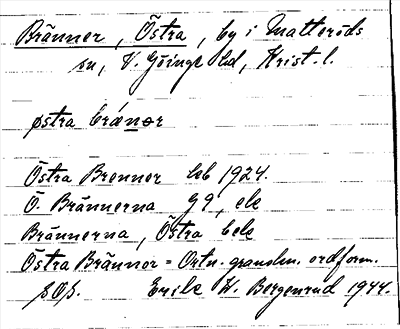 Bränner, Östra, by i Matteröds
sn, V. Göinge hd, Krist. l.
østra bränər
Östra Brenner hb 1924.
Ö. Brännerna GG, ek
Brännerna, Östra bek
Östra Brännor = Ortn. granskn. ordform.
Erik W. Bergenrud 1944.